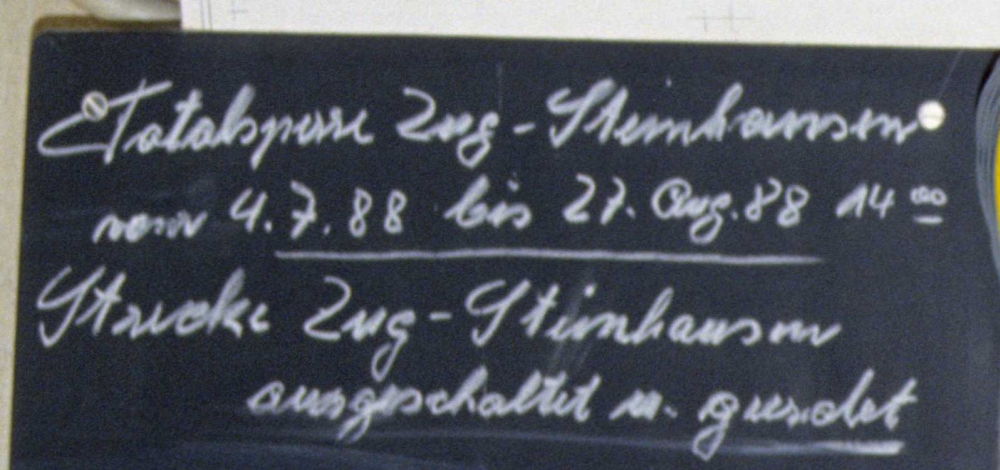 Totalsperre Zug-Steinhausen
vom 4.7.88 bis 27. Aug. 88 14 00
Strecke Zug-Steinhausen
ausgeschaltet u. geerdet